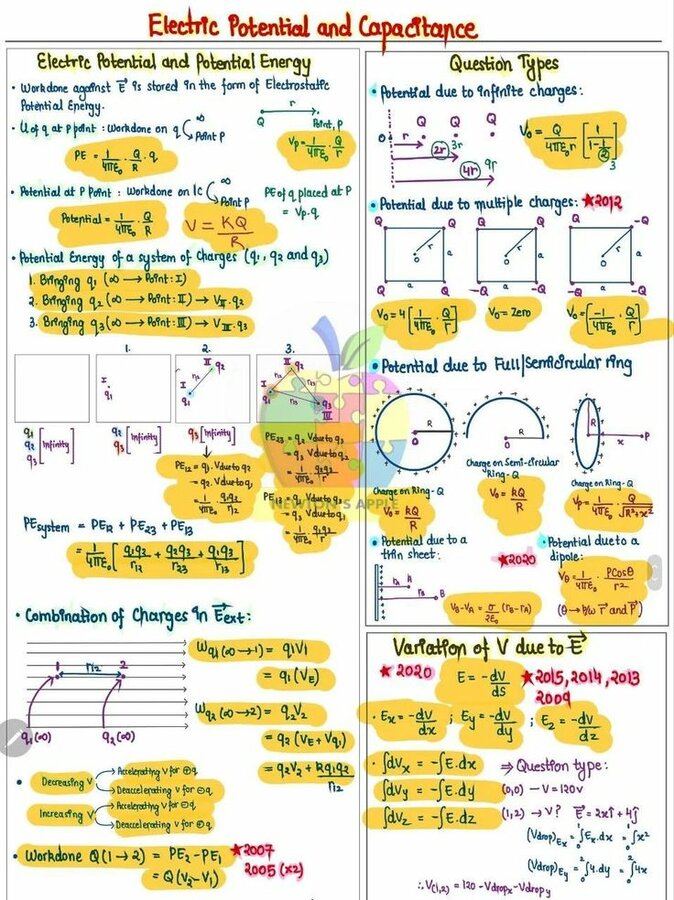 Electric Potential and Capacitance
Electric Potential and Potential Energy
• Workdone against E⃗ is stored in the form of Electrostatic
Potential Energy.
• U of q at P point : Workdone on q ∞ Point P
PE = 1/4πε₀ · Q/R · q
r
Q Point, P
Vp = 1/4πε₀ · Q/r
• Potential at P Point : Workdone on 1c ∞ Point P
PE of q placed at P
= Vp·q
Potential = 1/4πε₀ · Q/R
V = KQ/R
• Potential Energy of a system of Charges (q₁, q₂ and q₃)
1. Bringing q₁ (∞ → Point: I)
2. Bringing q₂ (∞ → Point: II) → V_II·q₂
3. Bringing q₃ (∞ → Point: III) → V_III·q₃
1. 2. 3.
I q₁
I q₁ r₁₂ II q₂
I q₁ II q₂ III q₃ r₁₂ r₂₃ r₁₃
q₁ q₂ q₃ [Infinity]
q₂ q₃ [Infinity]
q₃ [Infinity]
PE₁₂ = q₁·V due to q₂
= q₂·V due to q₁
= 1/4πε₀ q₁q₂/r₁₂
PE₂₃ = q₂ V due to q₃
= q₃ V due to q₂
= 1/4πε₀ q₂q₃/r
PE₁₃ = q₁ V due to q₃
= q₃ V due to q₁
= 1/4πε₀ q₁q₃/r
NEWTON'S APPLE
PE system = PE₁₂ + PE₂₃ + PE₁₃
= 1/4πε₀ [q₁q₂/r₁₂ + q₂q₃/r₂₃ + q₁q₃/r₁₃]
• Combination of Charges in E⃗ext:
1 r₁₂ 2
q₁(∞) q₂(∞)
Wq₁(∞→1) = q₁V₁
= q₁(V_E)
Wq₂(∞→2) = q₂V₂
= q₂(V_E + Vq₁)
= q₂V₂ + kq₁q₂/r₁₂
• Decreasing V
Accelerating V for ⊕q
Deaccelerating V for ⊖q
Increasing V
Accelerating V for ⊖q
Deaccelerating V for ⊕q
• Workdone Q(1→2) = PE₂ - PE₁
= Q(V₂ - V₁)
★2007
2005 (x2)
Question Types
• Potential due to infinite charges:
Q Q Q
O r 2r 3r 4r 9r
V₀ = Q/4πε₀r [1/1-1/2] 3
• Potential due to multiple charges: ★2012
Q Q Q Q r a O a
Q Q -Q -Q r a O a
Q -Q Q -Q r a O a
V₀ = 4[1/4πε₀ · Q/r]
V₀ = Zero
V₀ = [-1/4πε₀ · Q/r]
• Potential due to Full/Semicircular ring
O R
O R
R x P
Charge on Ring - Q
V₀ = kQ/R
Charge on Semi-circular
Ring - Q
V₀ = kQ/R
Charge on Ring - Q
Vp = 1/4πε₀ Q/√R²+x²
• Potential due to a
thin sheet:
★2020
rA A
B
V_B - V_A = σ/2ε₀ (r_B - r_A)
• Potential due to a
dipole:
V_θ = 1/4πε₀ · PCosθ/r²
(θ → b/w r⃗ and P⃗)
Variation of V due to E⃗
★2020
E = -dV/ds
★2015, 2014, 2013
2009
• Ex = -dV/dx ; Ey = -dV/dy ; Ez = -dV/dz
• ∫dVx = -∫E.dx
∫dVy = -∫E.dy
∫dVz = -∫E.dz
⇒ Question type:
(0,0) - V = 120v
(1,2) → V? E⃗ = 2xî + 4ĵ
(Vdrop)Ex = ∫Ex.dx = ∫x²
(Vdrop)Ey = ∫4.dy = ∫4x
∴ V(1,2) = 120 - Vdropx - Vdropy